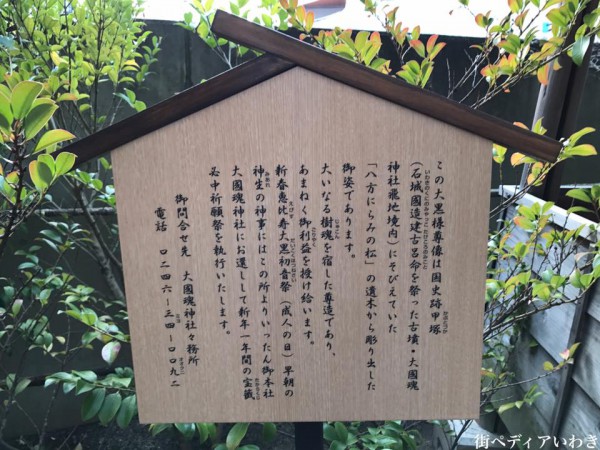 この大黒様尊像は国史跡甲塚
（石城國造建古呂命を祭った古墳・大國魂
神社飛地境内）にそびえていた
「八方にらみの松」の遺木から彫り出した
御姿であります。
大いなる樹魂を宿した尊造であり、
あまねく御利益を授け給います。
新春恵比寿大黒初音祭（成人の日）早朝の
神生の神事にはこの所よりいったん御本社
大國魂神社にお還しして新年一年間の宝籤
必中祈願祭を執行いたします。
御問合せ先　大國魂神社々務所
電話　〇二四六－三四－〇〇九二
街ペディアいわき